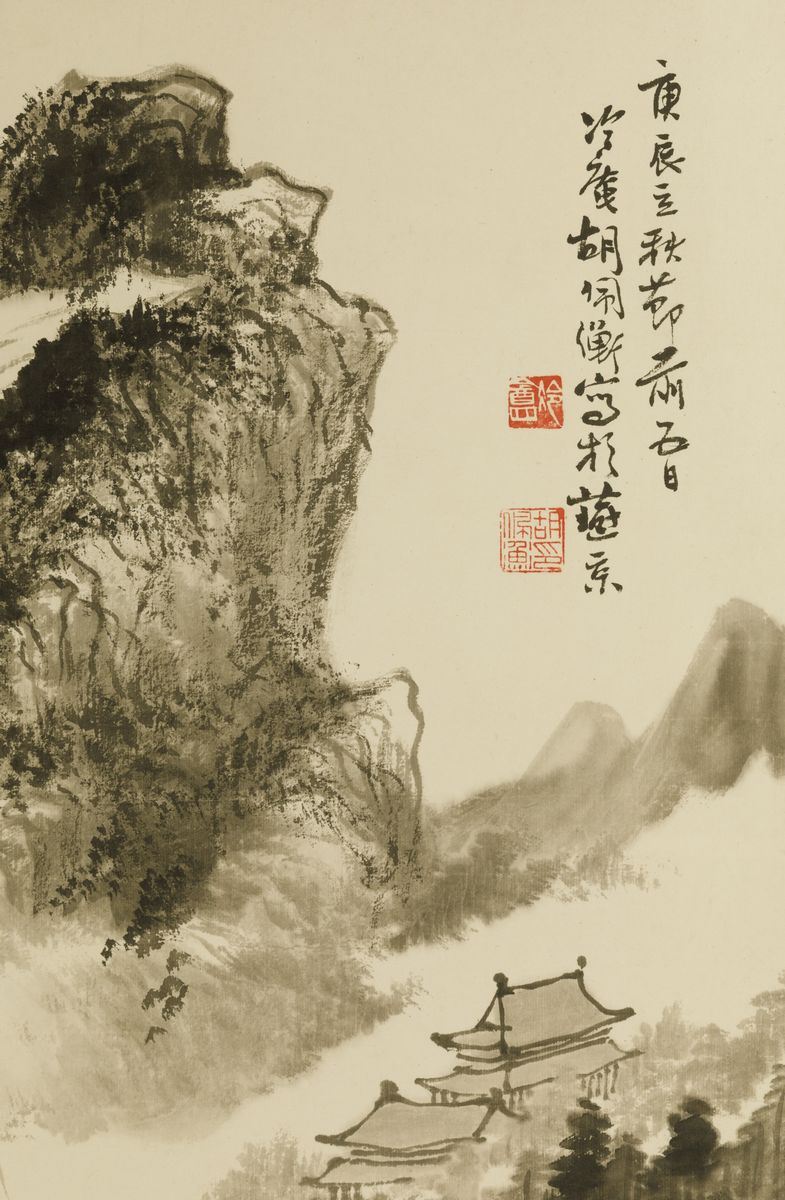 庚辰立秋節前五日
冷庵胡佩衡寫於燕京
冷盦
胡印佩衡